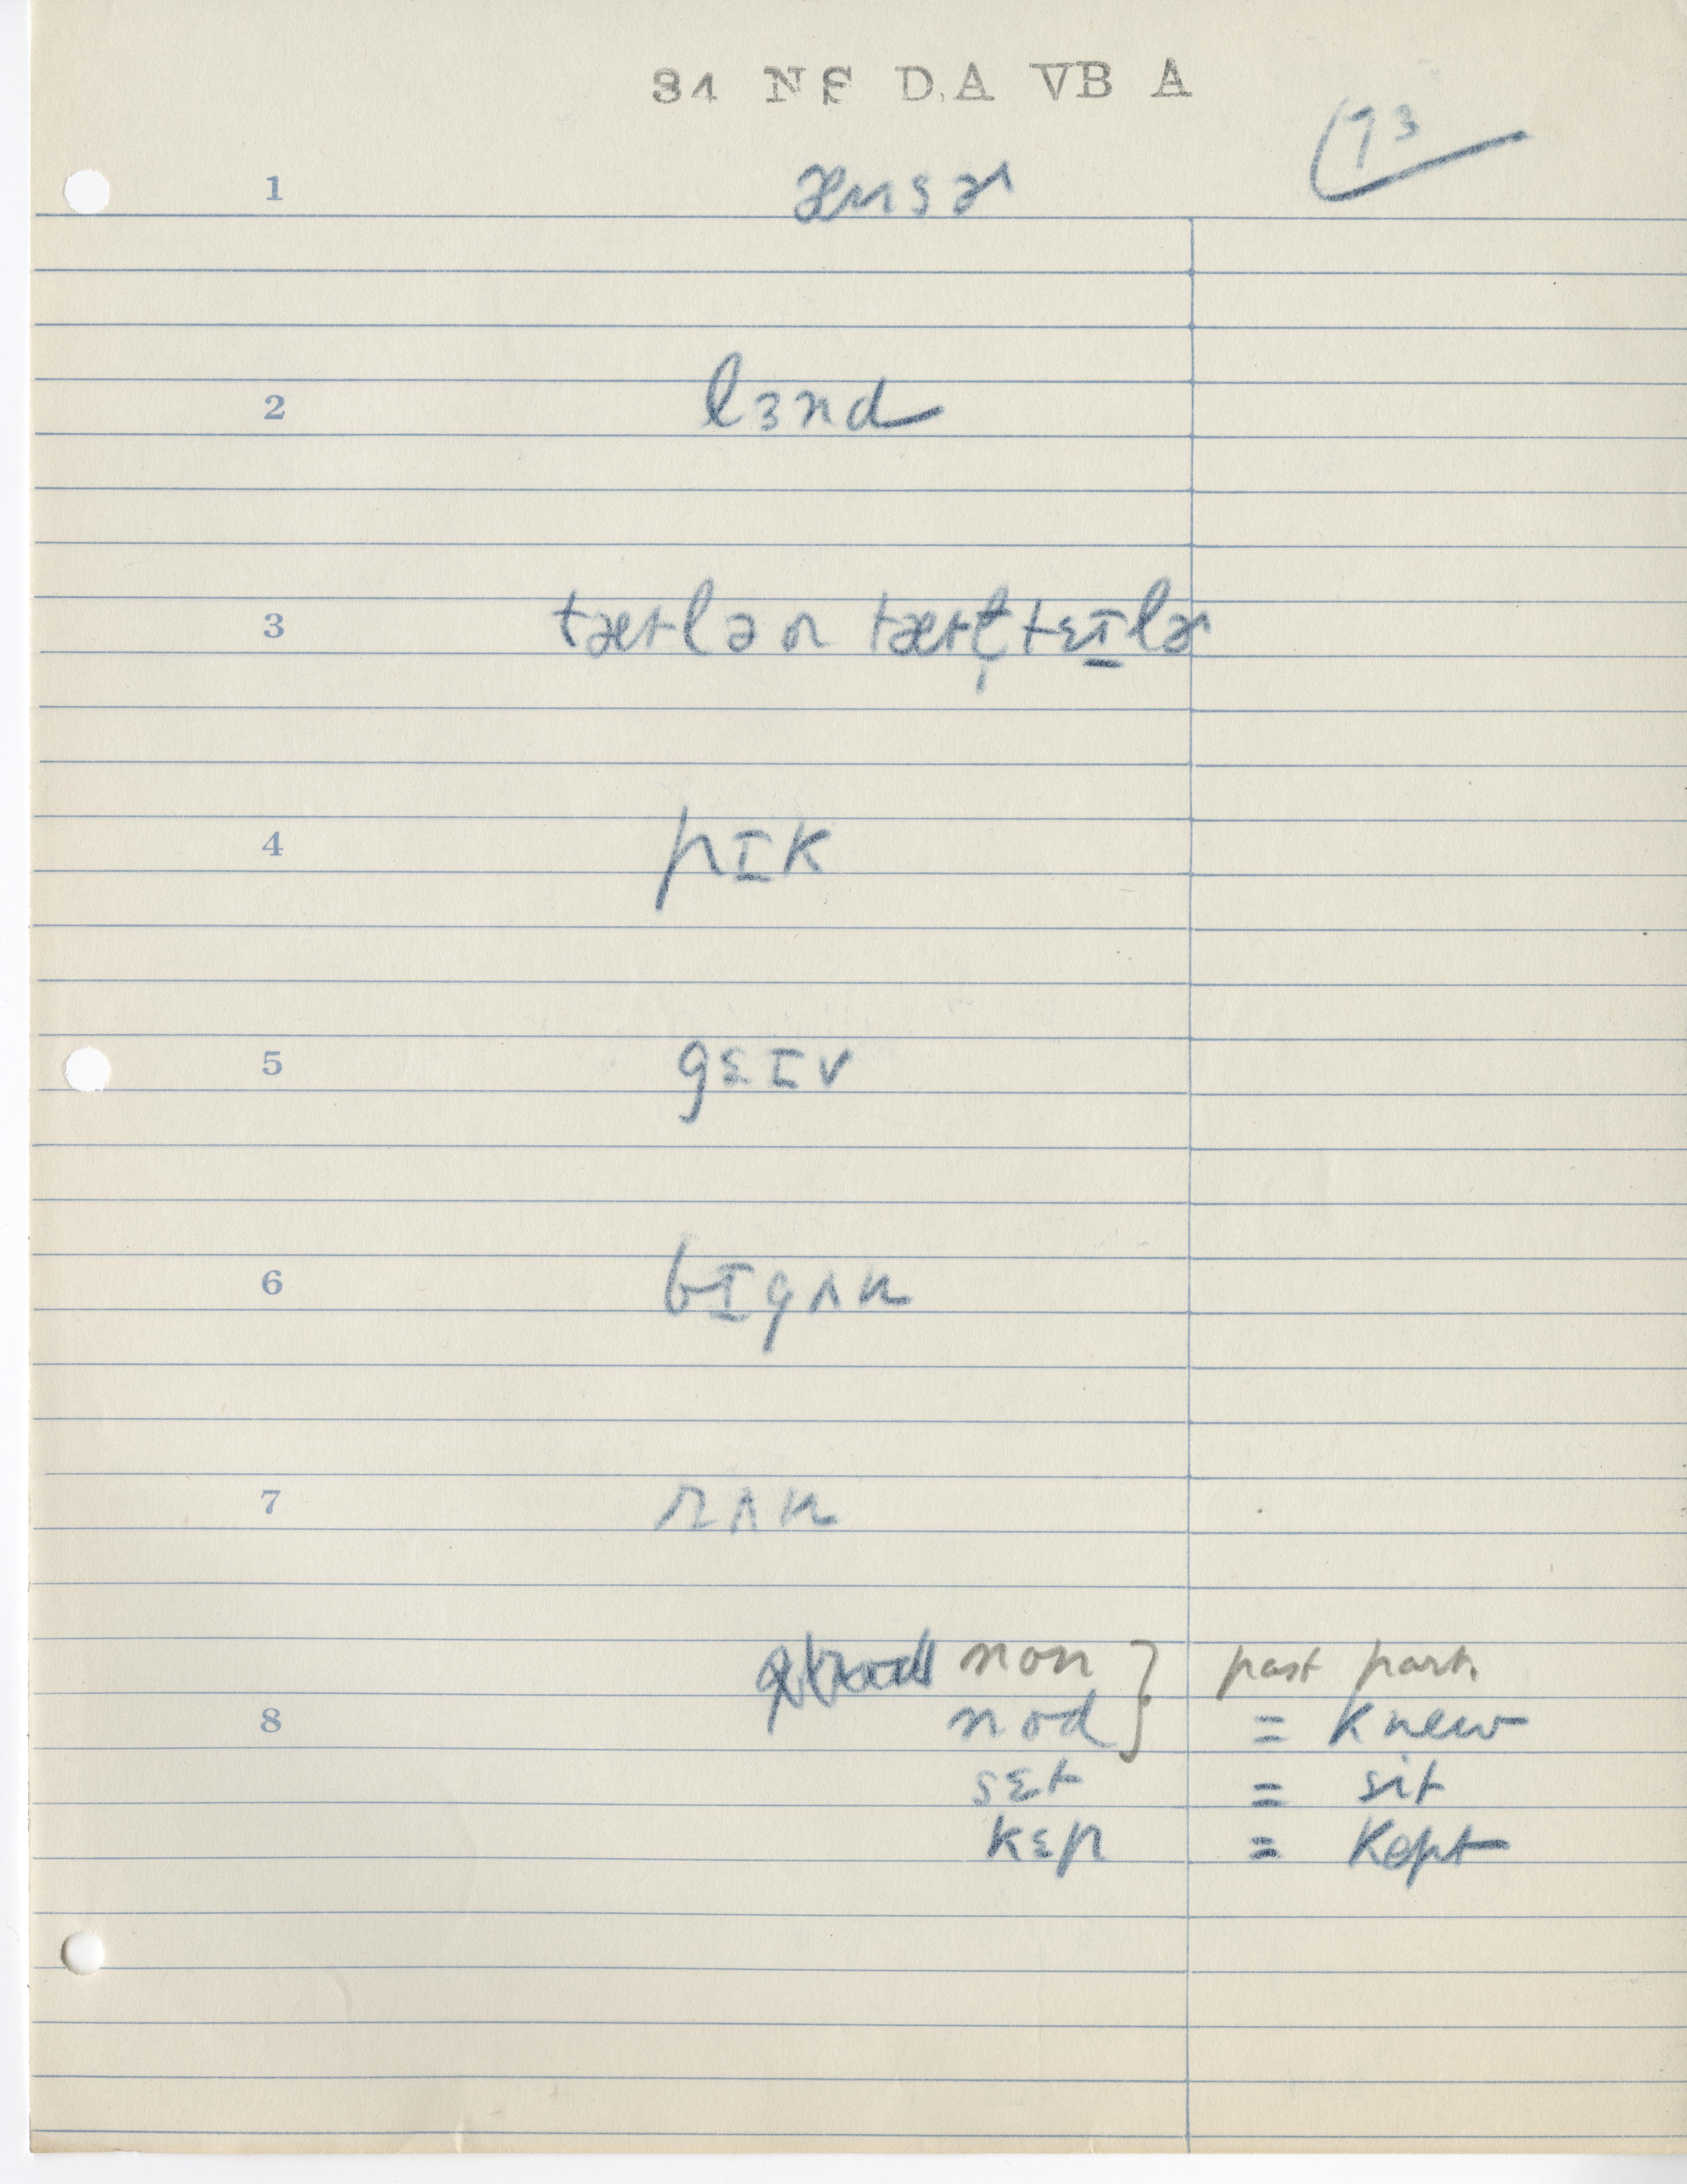 34 NS D.A VB A
73
1 ænsɚ
2 lɜnd
3 tætlə or tæt̩tɛɪlɚ
4 pɪk
5 gɛɪv
6 bɪgʌn
7 rʌn
non } past part.
8 nod = knew
sɛt = sit
kɛp = kept